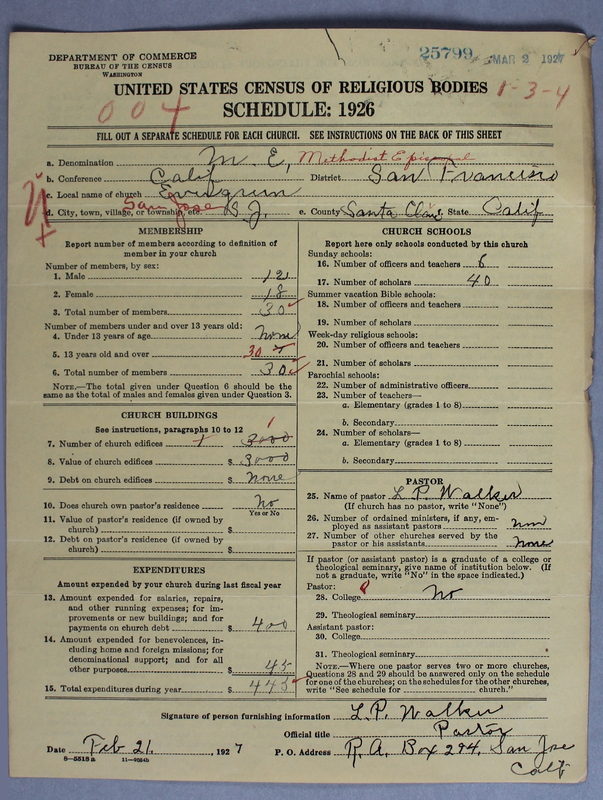 DEPARTMENT OF COMMERCE
BUREAU OF THE CENSUS
WASHINGTON
25799 MAR 2 1927
UNITED STATES CENSUS OF RELIGIOUS BODIES
1-3-4
004
SCHEDULE: 1926
FILL OUT A SEPARATE SCHEDULE FOR EACH CHURCH. SEE INSTRUCTIONS ON THE BACK OF THIS SHEET
a. Denomination M. E, Methodist Episcopal
b. Conference Calif District San Francisco
c. Local name of church Evergreen
d. City, town, village, or township, etc. San Jose S J. e. County Santa Clara f. State Calif
MEMBERSHIP
Report number of members according to definition of
member in your church
Number of members, by sex:
1. Male 12
2. Female 18
3. Total number of members 30
Number of members under and over 13 years old:
4. Under 13 years of age None
5. 13 years old and over 30
6. Total number of members 30
NOTE.—The total given under Question 6 should be
the same as the total of males and females given under Question 3.
CHURCH BUILDINGS
See instructions, paragraphs 10 to 12
7. Number of church edifices 1 3000
8. Value of church edifices $ 3000
9. Debt on church edifices $ None
10. Does church own pastor's residence No
Yes or No
11. Value of pastor's residence (if owned by
church) $
12. Debt on pastor's residence (if owned by
church) $
EXPENDITURES
Amount expended by your church during last fiscal year
13. Amount expended for salaries, repairs,
and other running expenses; for im-
provements or new buildings; and for
payments on church debt $ 400
14. Amount expended for benevolences, in-
cluding home and foreign missions; for
denominational support; and for all
other purposes $ 45
15. Total expenditures during year $ 445
CHURCH SCHOOLS
Report here only schools conducted by this church
Sunday schools:
16. Number of officers and teachers 6
17. Number of scholars 40
Summer vacation Bible schools:
18. Number of officers and teachers
19. Number of scholars
Week-day religious schools:
20. Number of officers and teachers
21. Number of scholars
Parochial schools:
22. Number of administrative officers
23. Number of teachers—
a. Elementary (grades 1 to 8)
b. Secondary
24. Number of scholars—
a. Elementary (grades 1 to 8)
b. Secondary
PASTOR
25. Name of pastor L. P. Walker
(If church has no pastor, write "None")
26. Number of ordained ministers, if any, em-
ployed as assistant pastors None
27. Number of other churches served by the
pastor or his assistants None
If pastor (or assistant pastor) is a graduate of a college or
theological seminary, give name of institution below. (If
not a graduate, write "No" in the space indicated.)
Pastor:
28. College No
29. Theological seminary
Assistant pastor:
30. College
31. Theological seminary
NOTE.—Where one pastor serves two or more churches,
Questions 28 and 29 should be answered only on the schedule
for one of the churches; on the schedules for the other churches,
write "See schedule for church."
Signature of person furnishing information L. P. Walker
Official title Pastor
Date Feb 21, 1927 P. O. Address R. A. Box 294, San Jose
Calif
8—5518 a 11—9024b